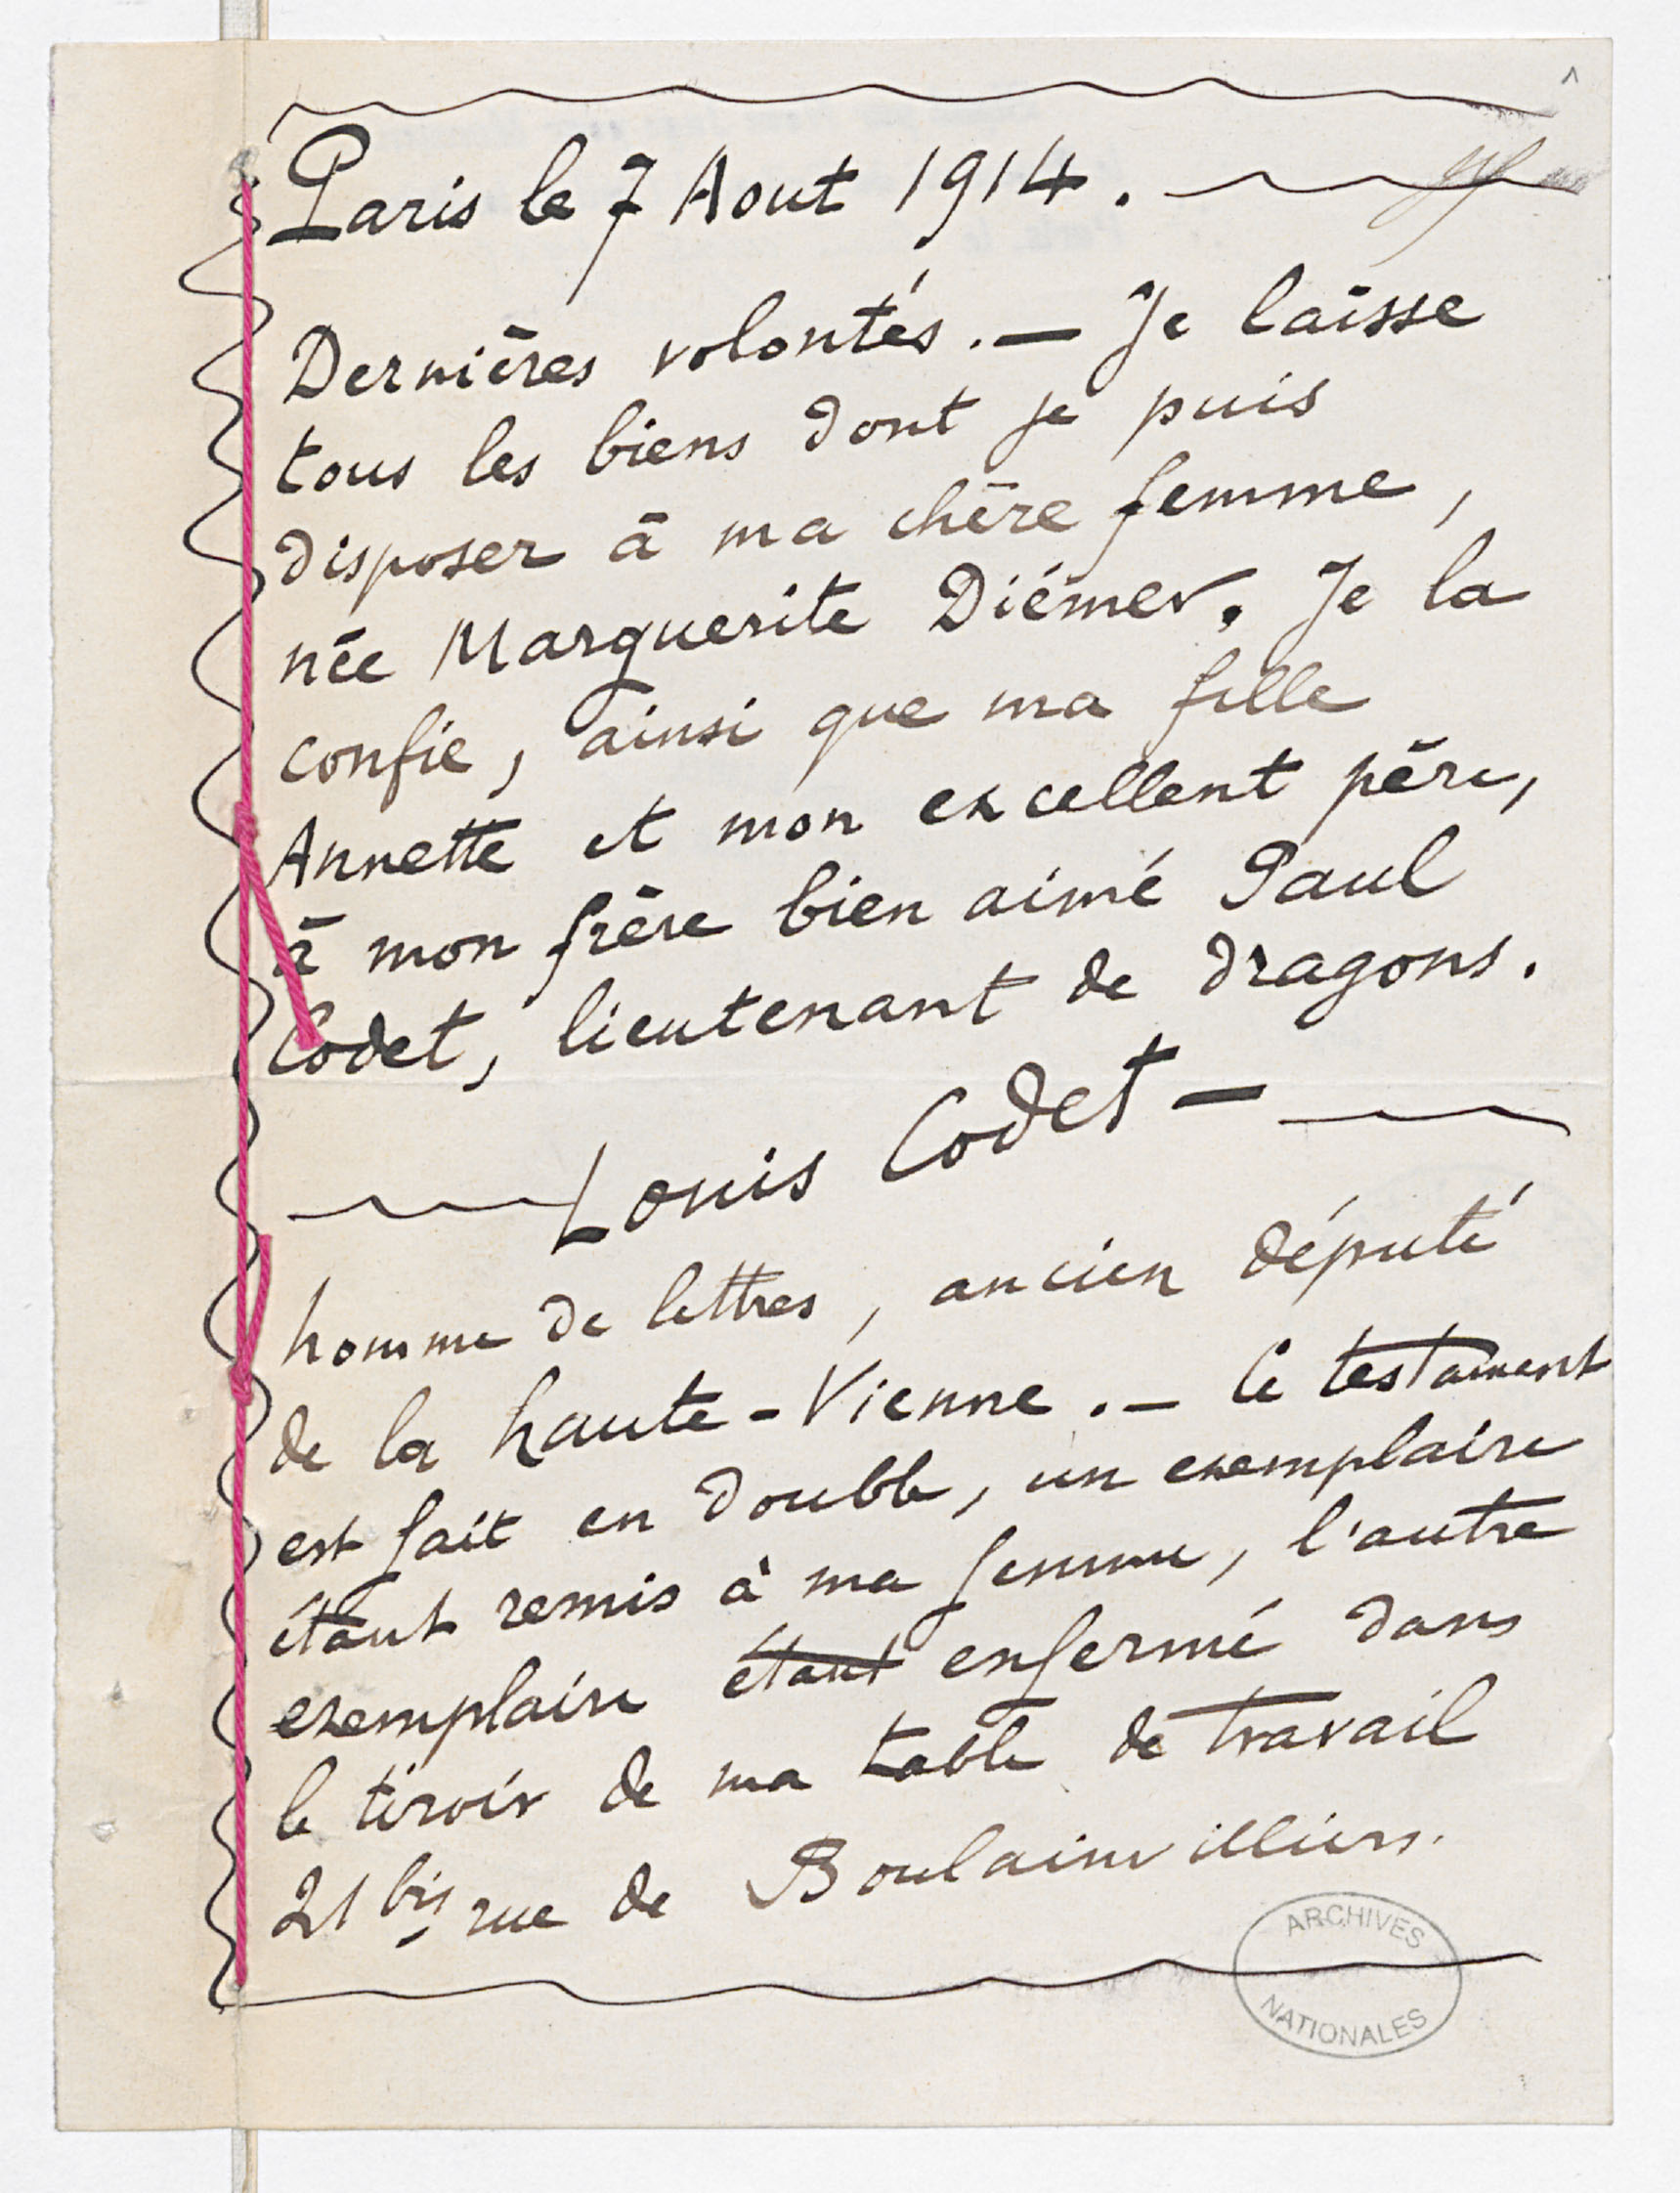 Paris le 7 Aout 1914.
Dernières volontés. — Je laisse
tous les biens dont je puis
disposer à ma chère femme,
née Marguerite Diémer. Je la
confie, ainsi que ma fille
Annette et mon excellent père,
à mon frère bien aimé Paul
Codet, lieutenant de dragons.
Louis Codet —
homme de lettres, ancien député
de la haute-Vienne. — Ce testament
est fait en double, un exemplaire
étant remis à ma femme, l'autre
exemplaire étant enfermé dans
le tiroir de ma table de travail
21 bis rue de Boulainvilliers.
ARCHIVES
NATIONALES